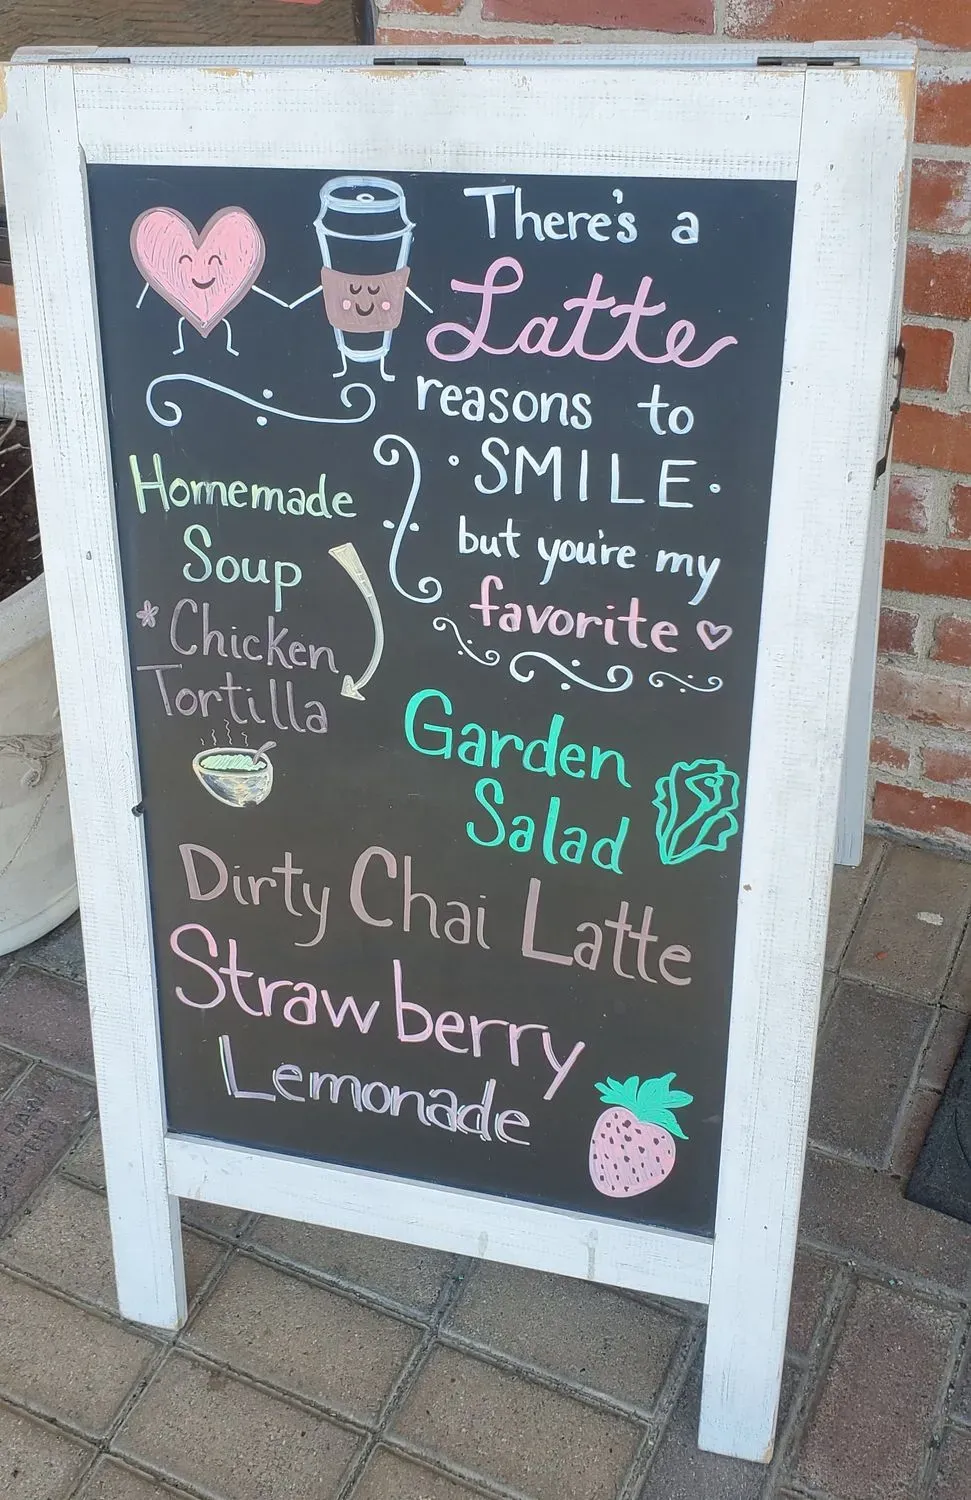 There's a
Latte
reasons to
·SMILE·
but you're my
favorite ♡
Homemade
Soup
*Chicken
Tortilla
Garden
Salad
Dirty Chai Latte
Strawberry
Lemonade